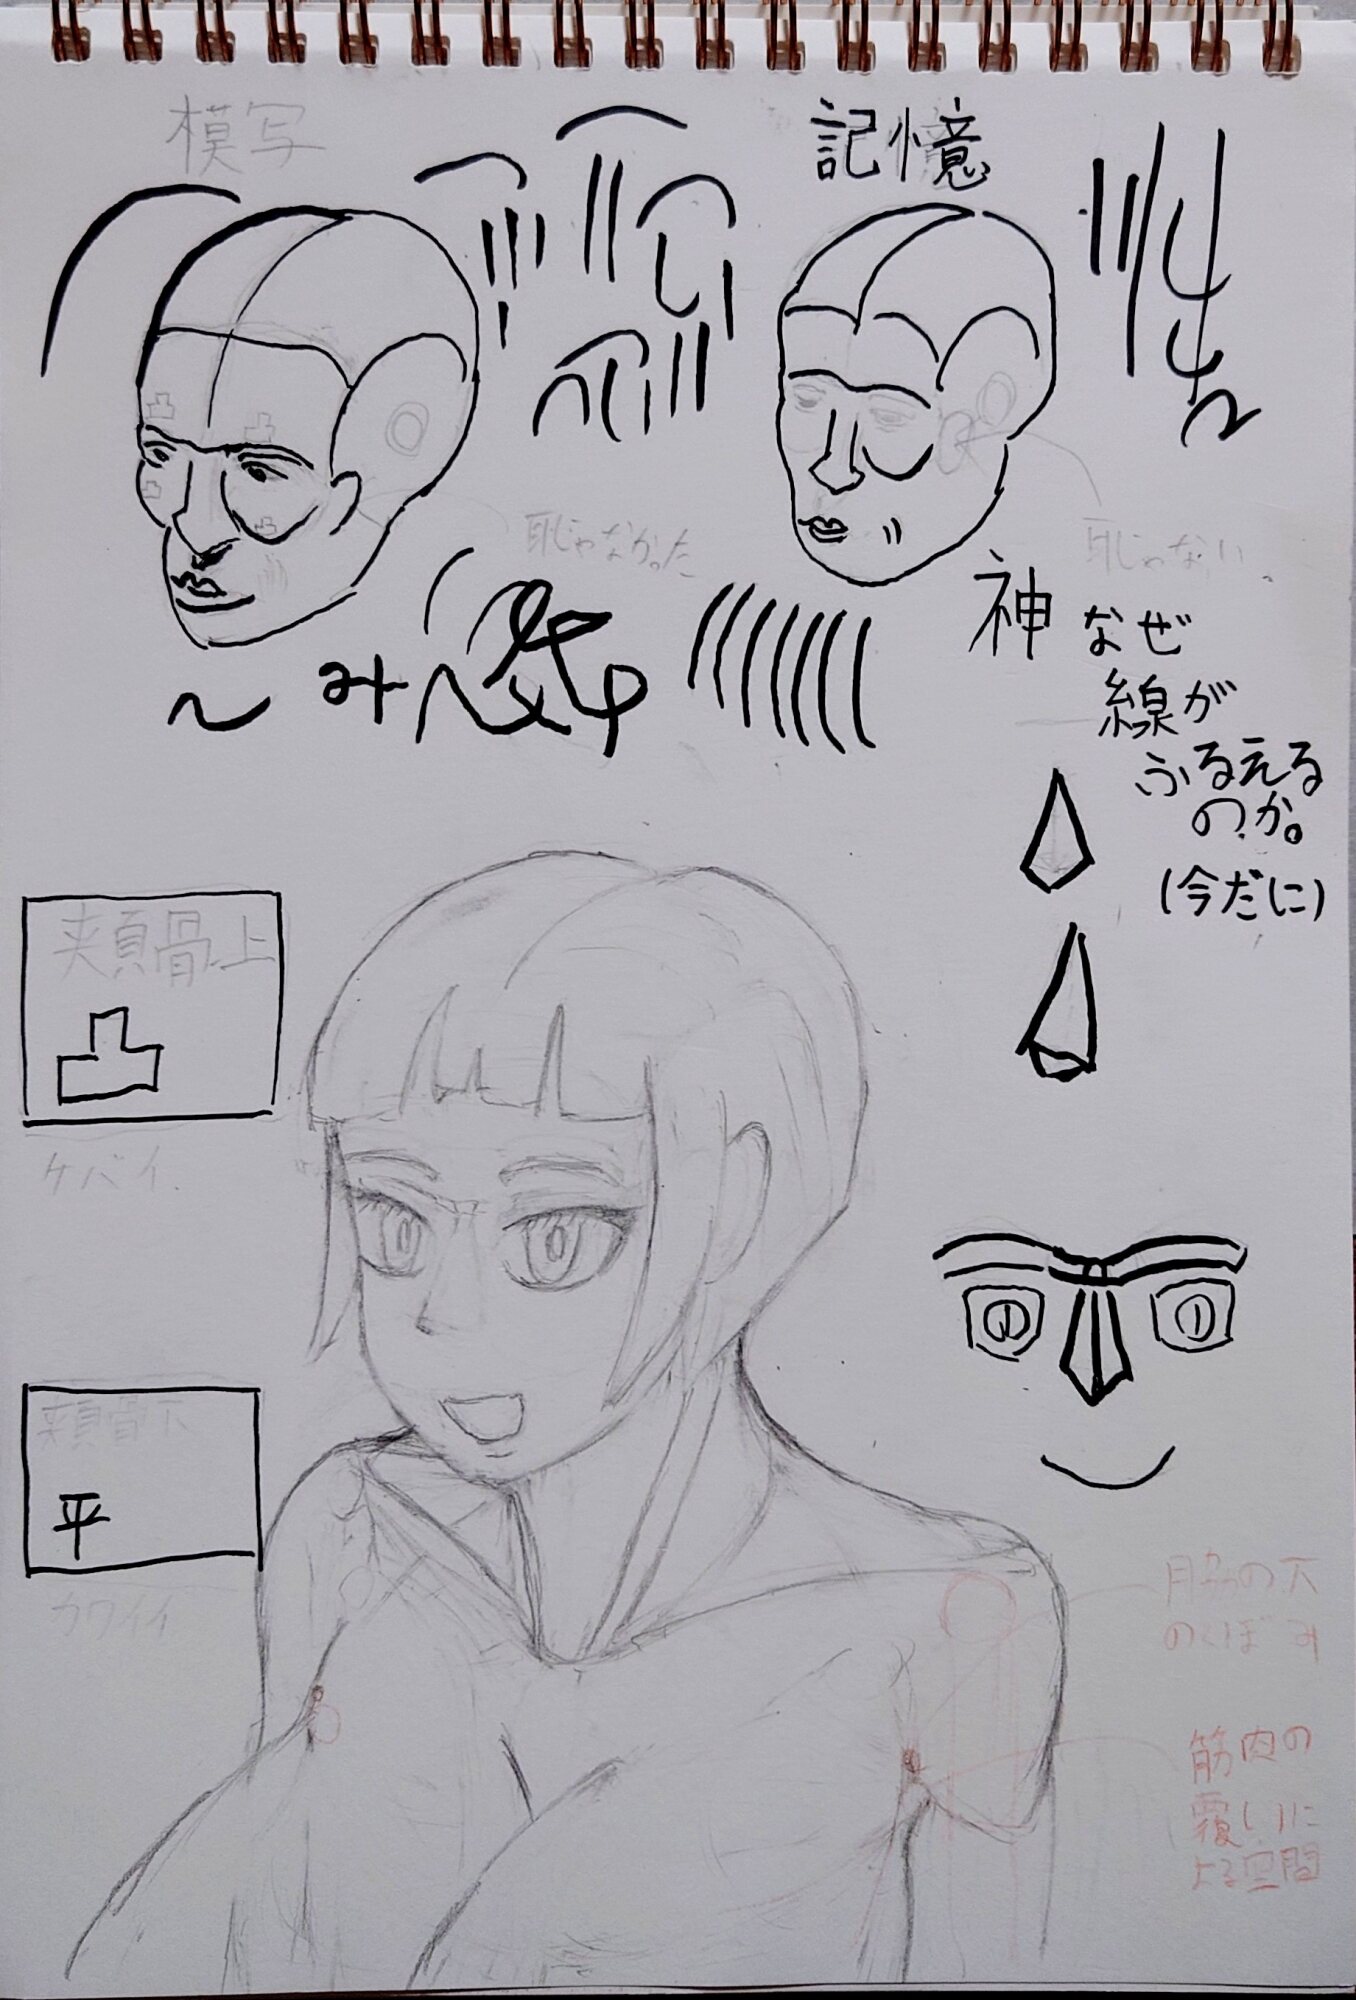 模写
記憶
耳じゃなかった
耳じゃない。
神
なぜ
線が
ふるえる
のか。
(今だに)
頬骨上
凸
ケバイ.
頬骨下
平
カワイイ
脇の下
のくぼみ
筋肉の
覆いに
よる空間